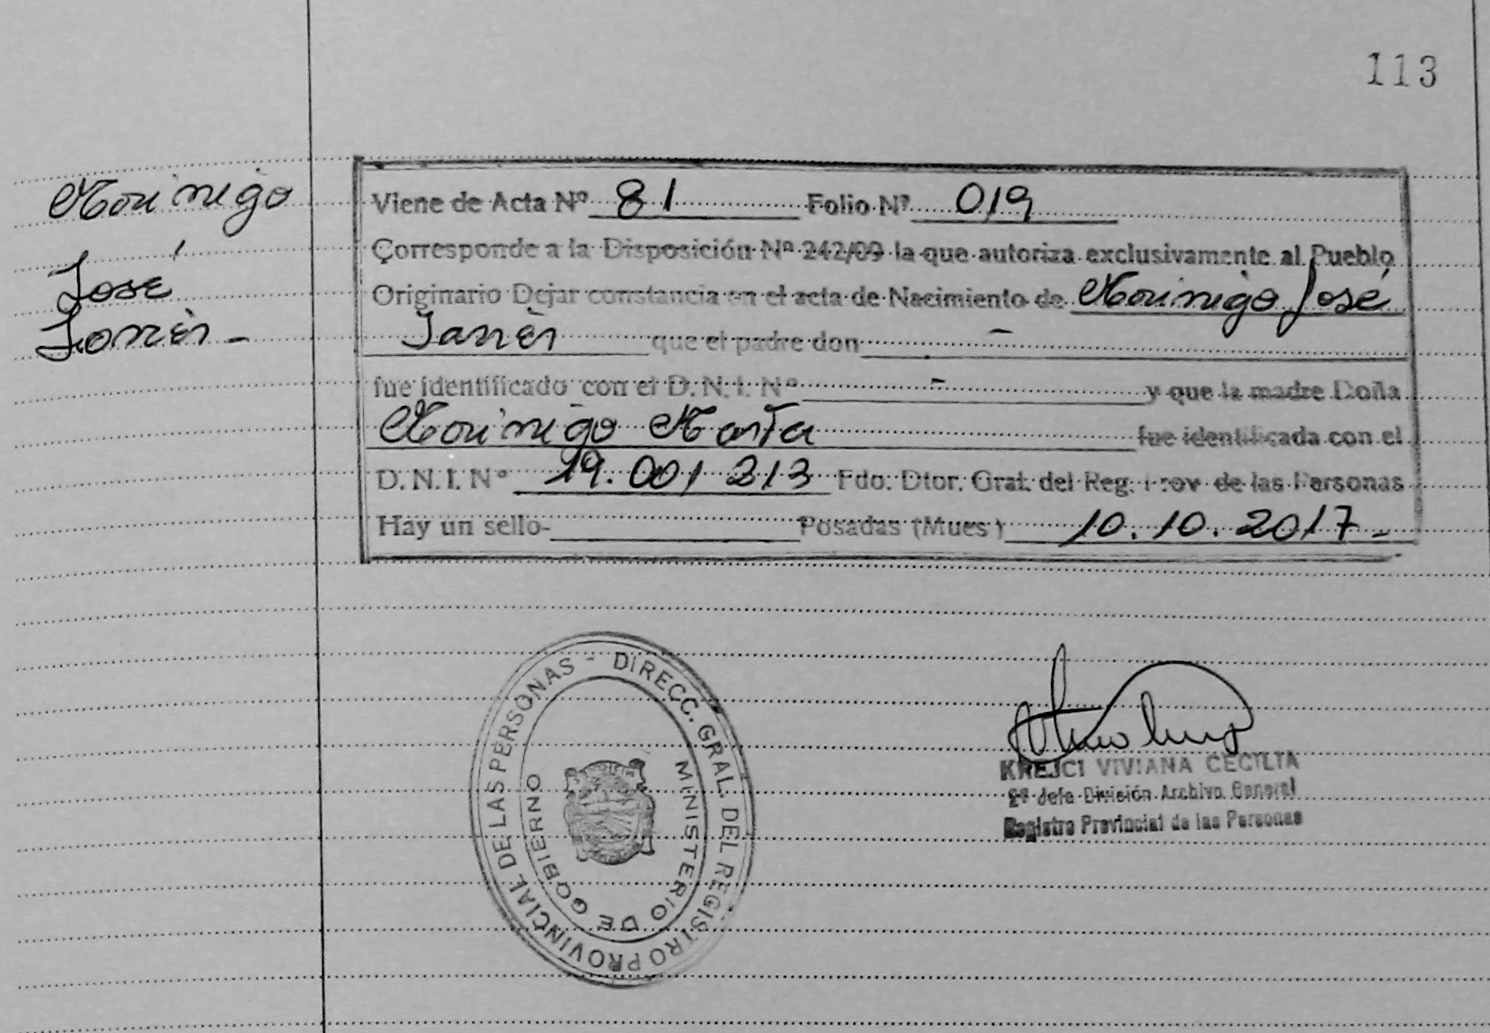 113
Morinigo
José
Javier -
Viene de Acta Nº 81 Folio Nº 019
Corresponde a la Disposición Nº 242/09 la que autoriza exclusivamente al Pueblo
Originario Dejar constancia en el acta de Nacimiento de Morinigo José
Javier que el padre don -
fue identificado con el D.N.I. Nº - y que la madre Doña
Morinigo Marta fue identificada con el
D.N.I. Nº 19.001 213 Fdo. Dtor. Gral. del Reg. Prov de las Personas
Hay un sello- Posadas (Mnes) 10.10.2017-
DIRECC. GRAL. DEL REGISTRO PROVINCIAL DE LAS PERSONAS -
MINISTERIO DE GOBIERNO
KREJCI VIVIANA CECILIA
2º Jefe División Archivo General
Registro Provincial de las Personas